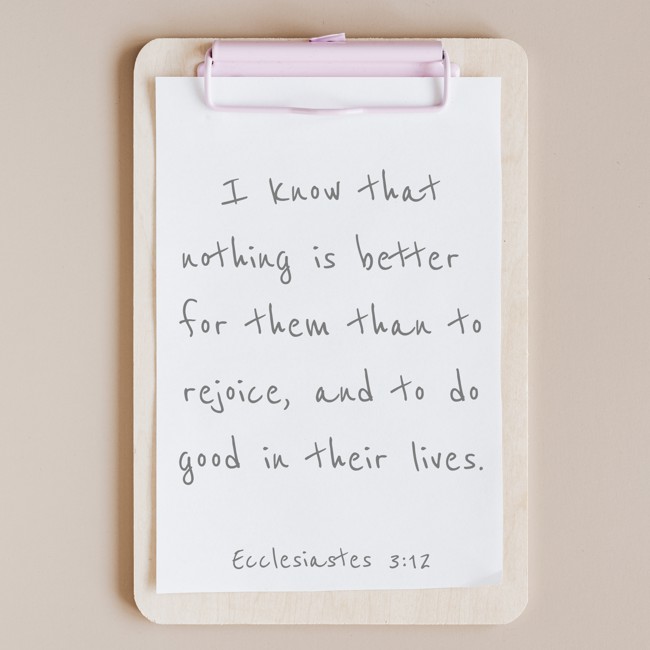 I know that
nothing is better
for them than to
rejoice, and to do
good in their lives.
Ecclesiastes 3:12